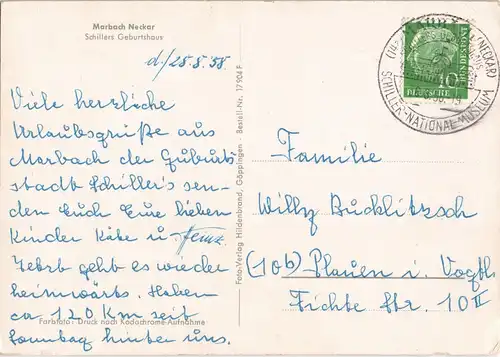 Marbach Neckar
Schillers Geburtshaus
d./28.5.58
Viele herzliche
Urlaubsgrüße aus
Marbach der Guburts
stadt Schiller's sen-
den Euch Eure lieben
Kinder Käte u.
Jetzt geht es wieder
heimwärts. Haben
ca 120 Km seit
Sonntag hinter uns.
Farbfoto: Druck nach Kodachrome-Aufnahme
Foto-Verlag Hildenbrand, Göppingen - Bestell-Nr. 17904 F
DEUTSCHE BUNDESPOST
10
(NECKAR)
SCHILLER-NATIONAL-MUSEUM
Familie
Willy Buchlitzsch
(10b) Plauen i. Vogtl
Fichte Str. 10 II